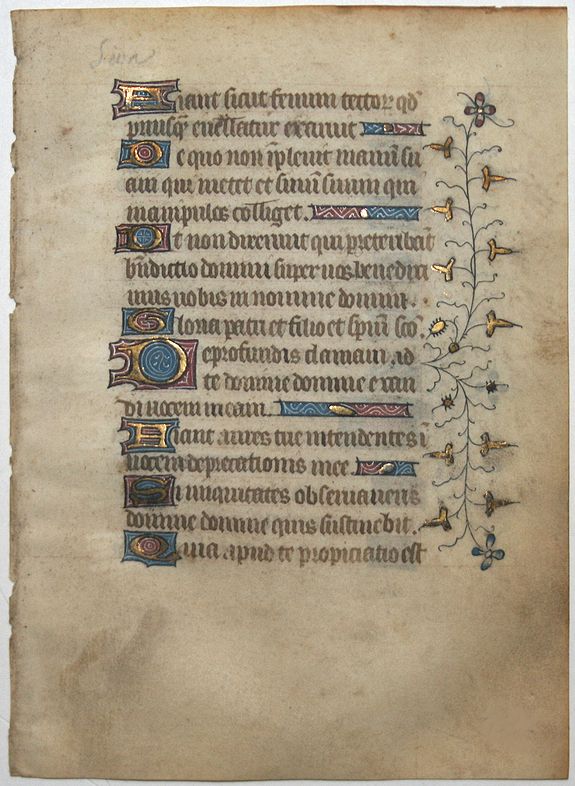 Fiant sicut fenum tectoꝝ qđ
priusqꝫ euellatur exaruit
De quo non īpleuit manū su
am qui metet et sinū suum qui
manipulos colliget.
Et non dixerunt qui preteribāt
bn̄dictio domini super uos benedixi
mus uobis in nomine domini.
Gloria patri et filio et spiritui sc̄o.
De profundis clamaui ad
te domine domine exau
di uocem meam.
Fiant aures tue intendentes ī
uocem deprecationis mee.
Si iniquitates obseruaueris
domine domine quis sustinebit.
Quia apud te propiciatio est